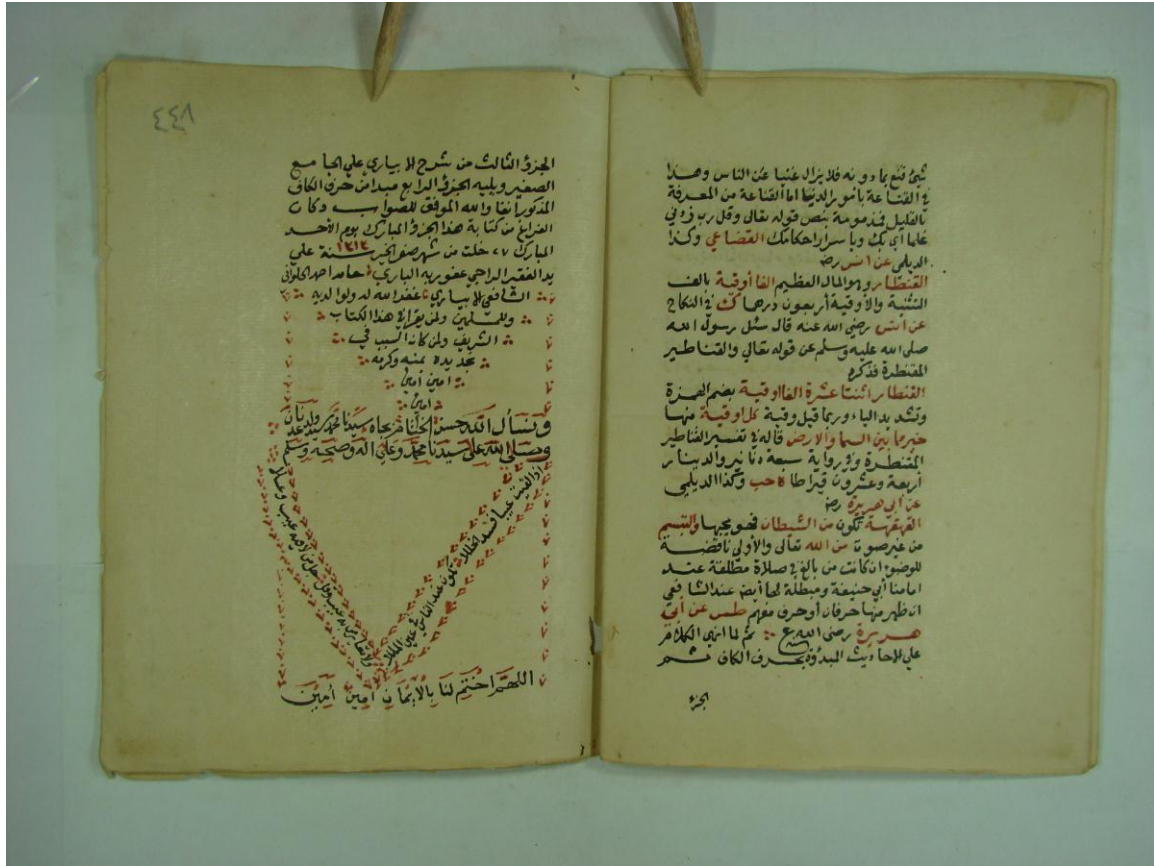 شيئ قنع بما دونه فلا يزال غنيا عن الناس وهذا
في القناعة بأمور الدنيا اما القناعة من المعرفة
بالقليل فمذمومة بنص قوله تعالي وقل رب زدني
علما أي بك وباسرار احكامك القضاعي وكذا
الديلمي عن انس رض
القنطار وهو المال العظيم الفا أوقية بالف
التثنية والأوقية أربعون درهما ك في النكاح
عن أنس رضي الله عنه قال سئل رسول الله
صلي الله عليه وسلم عن قوله تعالي والقناطير
المقنطرة فذكره
القنطار اثنتا عشرة الفا اوقية بضم الهمزة
وتشديد الياء وربما قيل وقية كل اوقية منها
خير مما بين السما والارض قاله في تفسير القناطير
المقنطرة وفي رواية سبعة دنانير والدينار
أربعة وعشرون قيراطا ه حب وكذا الديلمي
عن أبي هريرة رض
القهقهة تكون من الشيطان فهو يحبها والتبسم
من غير صوت من الله تعالي والأولي ناقضة
للوضوء ان كانت من بالغ في صلاة مطلقة عند
امامنا أبي حنيفة ومبطلة لها أيض عند الشافعي
ان ظهر منها حرفان أو حرف مفهم طس عن أبي
هريرة رضي الله ع ثم لما انهي الكلام
علي الاحاديث المبدؤة بحرف الكاف تم
الجزء
٤٤٨
الجزؤ الثالث من شرح الابياري علي الجامع
الصغير ويليه الجزؤ الرابع مبدا من حرف الكاف
المذكور انفا والله الموفق للصواب وكان
الفراغ من كتابة هذا الجزؤ المبارك يوم الأحد
المبارك ٢٧ خلت من شهر صفر الخير سنة ١٣١٣ علي
يد الفقير الراجي عفو ربه الباري حامد احمد الحلواني
الشافعي الابياري غفر الله له ولوالديه
وللمسلمين ولمن يقرا في هذا الكتاب
الشريف ولمن كانه السبب في
تجديده بمنه وكرمه
امين امين
امين
ونسأل الله حسن الختام بجاه سيدنا محمد سيد ولد عدنان
وصلي الله علي سيدنا محمد وعلي اله وصحبه وسلم
اذا لقيت عيبا فسد الخللا
اللهم اختم لنا بالايمان امين امين